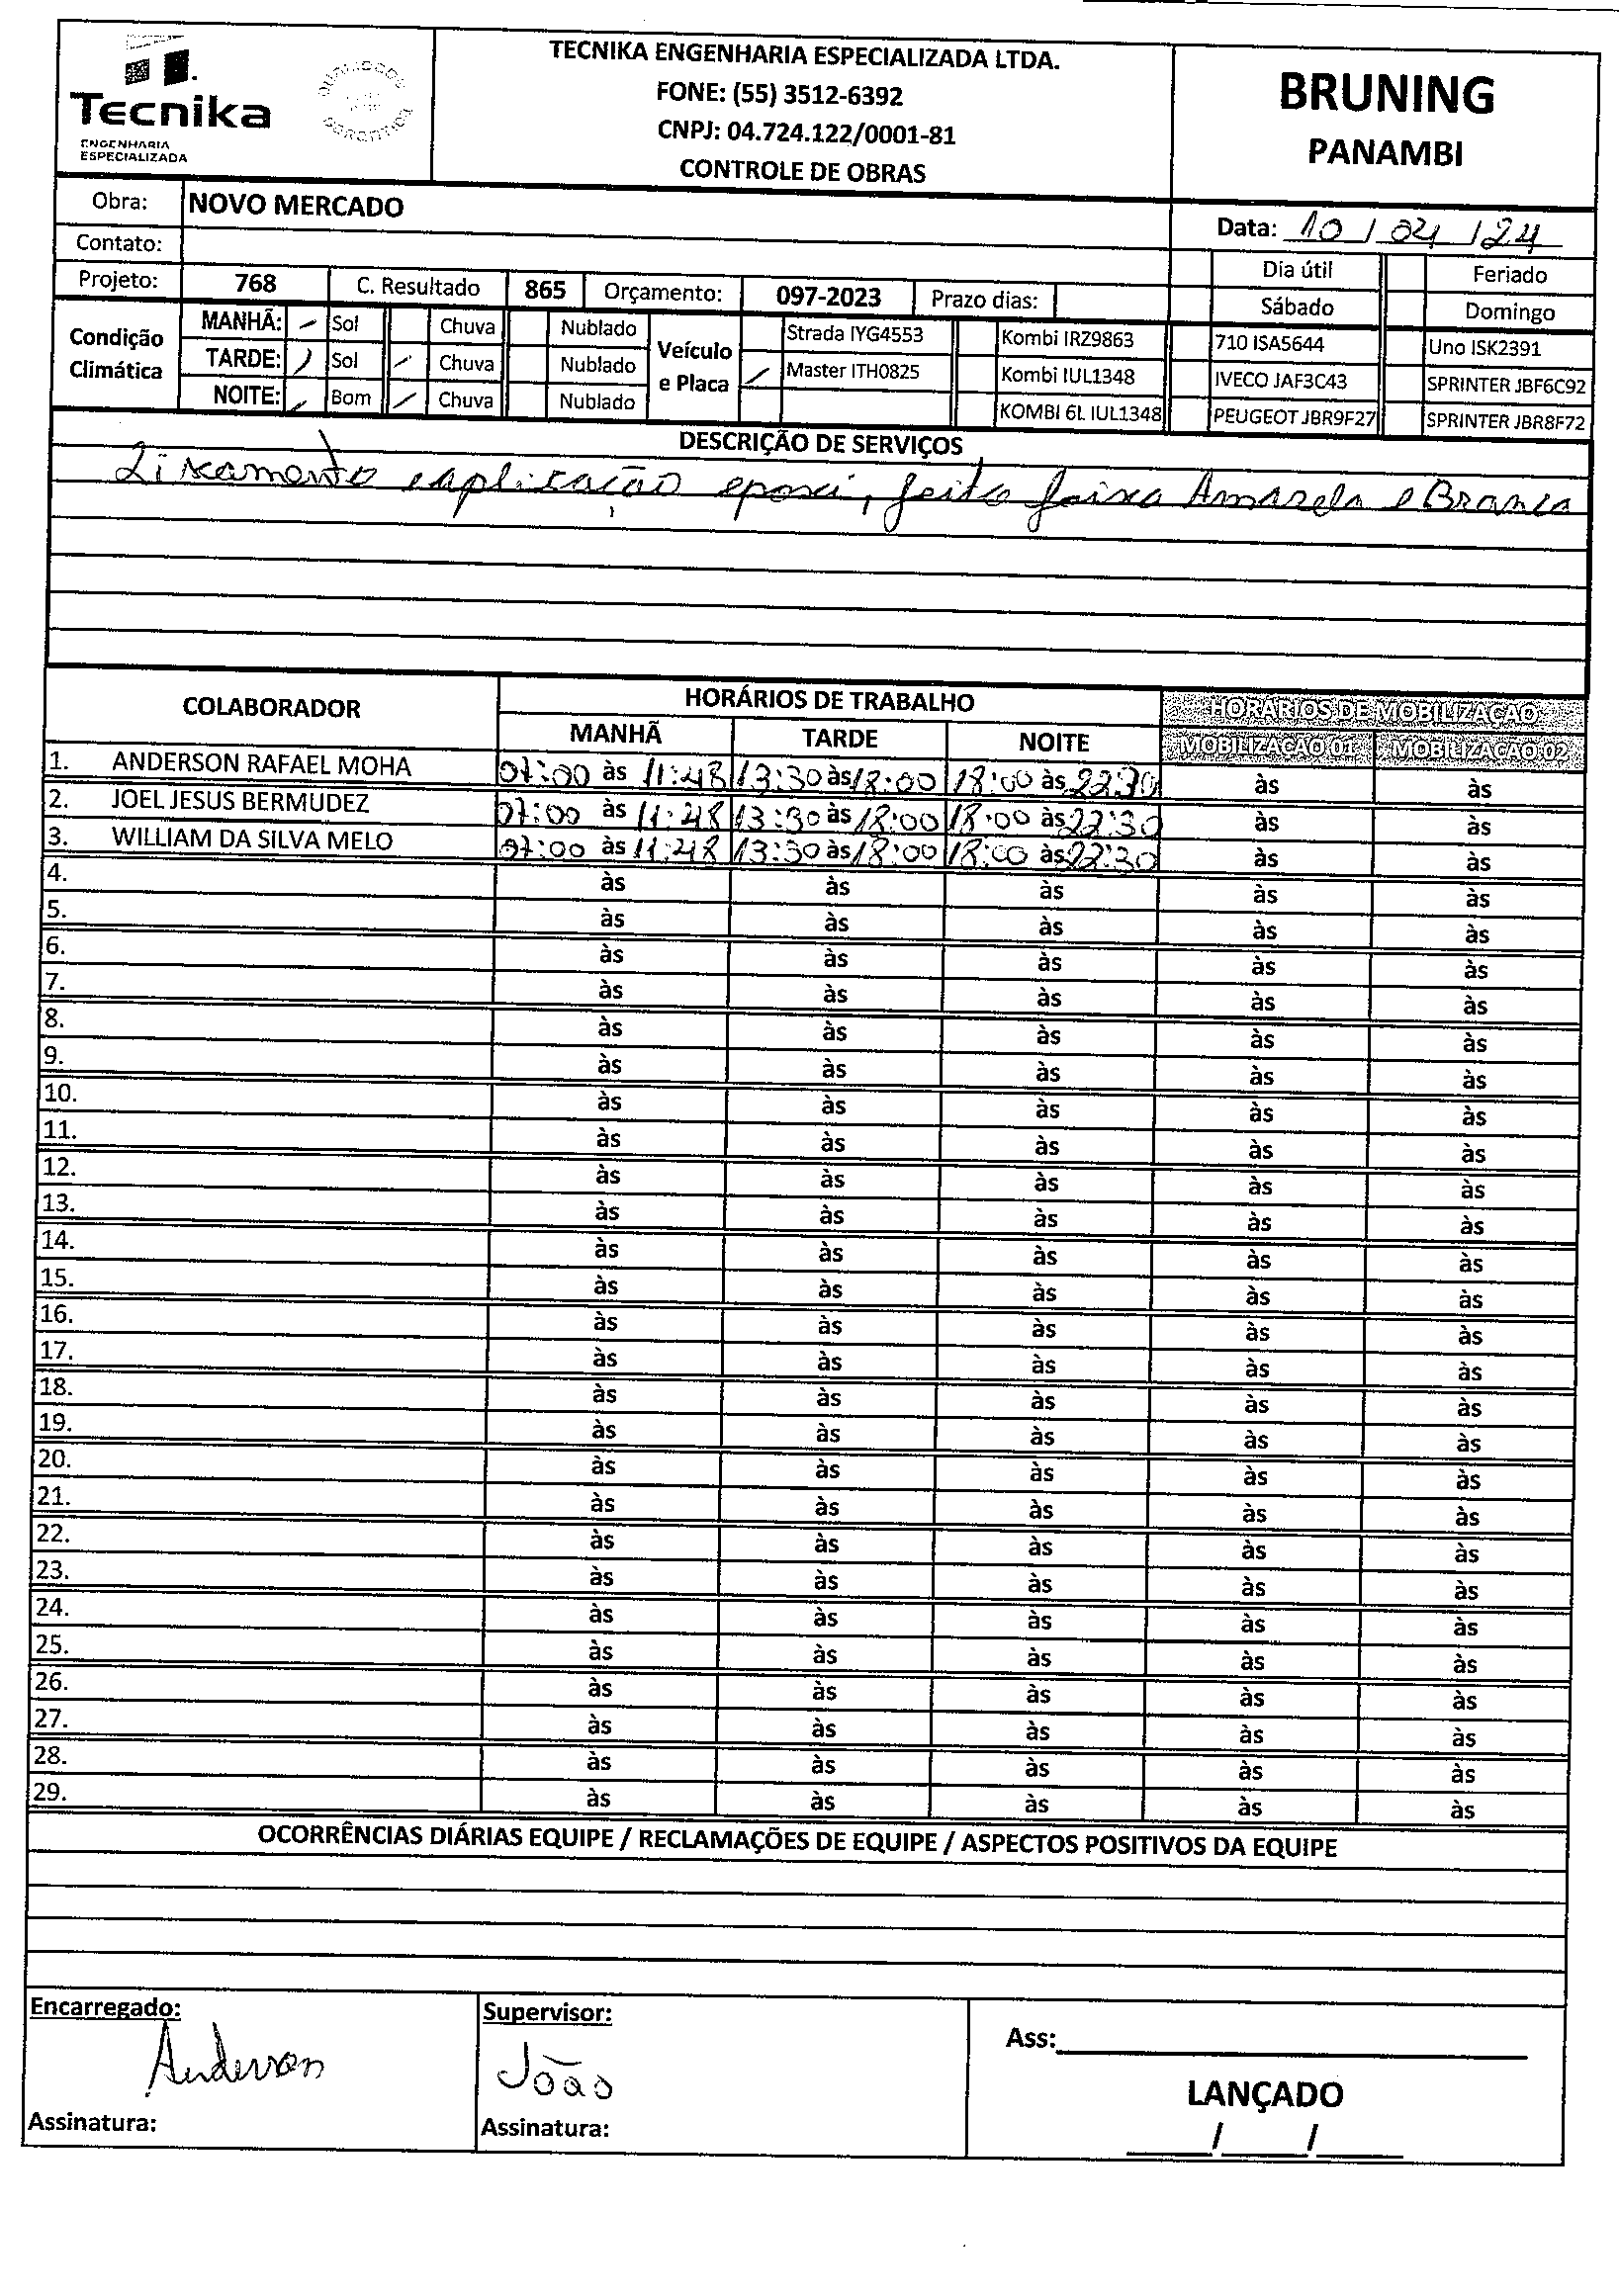 Tecnika
ENGENHARIA
ESPECIALIZADA
TECNIKA ENGENHARIA ESPECIALIZADA LTDA.
FONE: (55) 3512-6392
CNPJ: 04.724.122/0001-81
CONTROLE DE OBRAS
BRUNING
PANAMBI
Obra: NOVO MERCADO
Data: 10 / 04 / 24
Contato:
Dia útil Feriado
Projeto: 768 C. Resultado 865 Orçamento: 097-2023 Prazo dias:
Sábado Domingo
Condição Climática
MANHÃ: Sol Chuva Nublado
TARDE: Sol Chuva Nublado
NOITE: Bom Chuva Nublado
Veículo e Placa
Strada IYG4553 Kombi IRZ9863 710 ISA5644 Uno ISK2391
Master ITH0825 Kombi IUL1348 IVECO JAF3C43 SPRINTER JBF6C92
KOMBI 6L IUL1348 PEUGEOT JBR9F27 SPRINTER JBR8F72
DESCRIÇÃO DE SERVIÇOS
Lixamento e aplicação eposci, feito faixa Amarela e Branca
COLABORADOR HORÁRIOS DE TRABALHO HORÁRIOS DE MOBILIZAÇÃO
MANHÃ TARDE NOITE MOBILIZAÇÃO 01 MOBILIZAÇÃO 02
1. ANDERSON RAFAEL MOHA 07:00 às 11:48 13:30 às 18:00 18:00 às 22:30 às às
2. JOEL JESUS BERMUDEZ 07:00 às 11:48 13:30 às 18:00 18:00 às 22:30 às às
3. WILLIAM DA SILVA MELO 07:00 às 11:48 13:30 às 18:00 18:00 às 22:30 às às
4. às às às às às
5. às às às às às
6. às às às às às
7. às às às às às
8. às às às às às
9. às às às às às
10. às às às às às
11. às às às às às
12. às às às às às
13. às às às às às
14. às às às às às
15. às às às às às
16. às às às às às
17. às às às às às
18. às às às às às
19. às às às às às
20. às às às às às
21. às às às às às
22. às às às às às
23. às às às às às
24. às às às às às
25. às às às às às
26. às às às às às
27. às às às às às
28. às às às às às
29. às às às às às
OCORRÊNCIAS DIÁRIAS EQUIPE / RECLAMAÇÕES DE EQUIPE / ASPECTOS POSITIVOS DA EQUIPE
Encarregado:
Anderson
Assinatura:
Supervisor:
João
Assinatura:
Ass:
LANÇADO
/ /